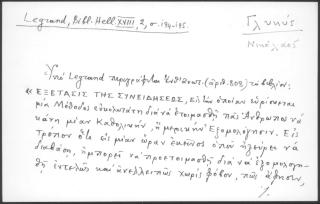 Legrand, Bibl. Hell. XVIII, 2, σ. 184-185.
Γλυκύς
Νικόλαος
Ὑπὸ Legrand περιγράφεται (ἀριθ. 808) τὸ βιβλίον:
« ΕΞΕΤΑΣΙΣ ΤΗΣ ΣΥΝΕΙΔΗΣΕΩΣ, εἰς τὴν ὁποίαν εὑρίσκεται
μία Μέθοδος εὐκολωτάτη διὰ νὰ ἑτοιμασθῇ πᾶς Ἄνθρωπος νὰ
κάνῃ μίαν Καθολικὴν, ἢ μερικὴν Ἐξομολόγησιν. Εἰς
Τρόπον ὅτι εἰς μίαν ὥραν ἐκεῖνος ὁποῦ ἠξεύρει νὰ
διαβάσῃ, ἠμπορεῖ νὰ προετοιμασθῇ διὰ νὰ ἐξομολογη-
θῇ ἐντελῶς καὶ ἀνελλειπῶς χωρὶς φόβον, πῶς ἄφησεν,
./.